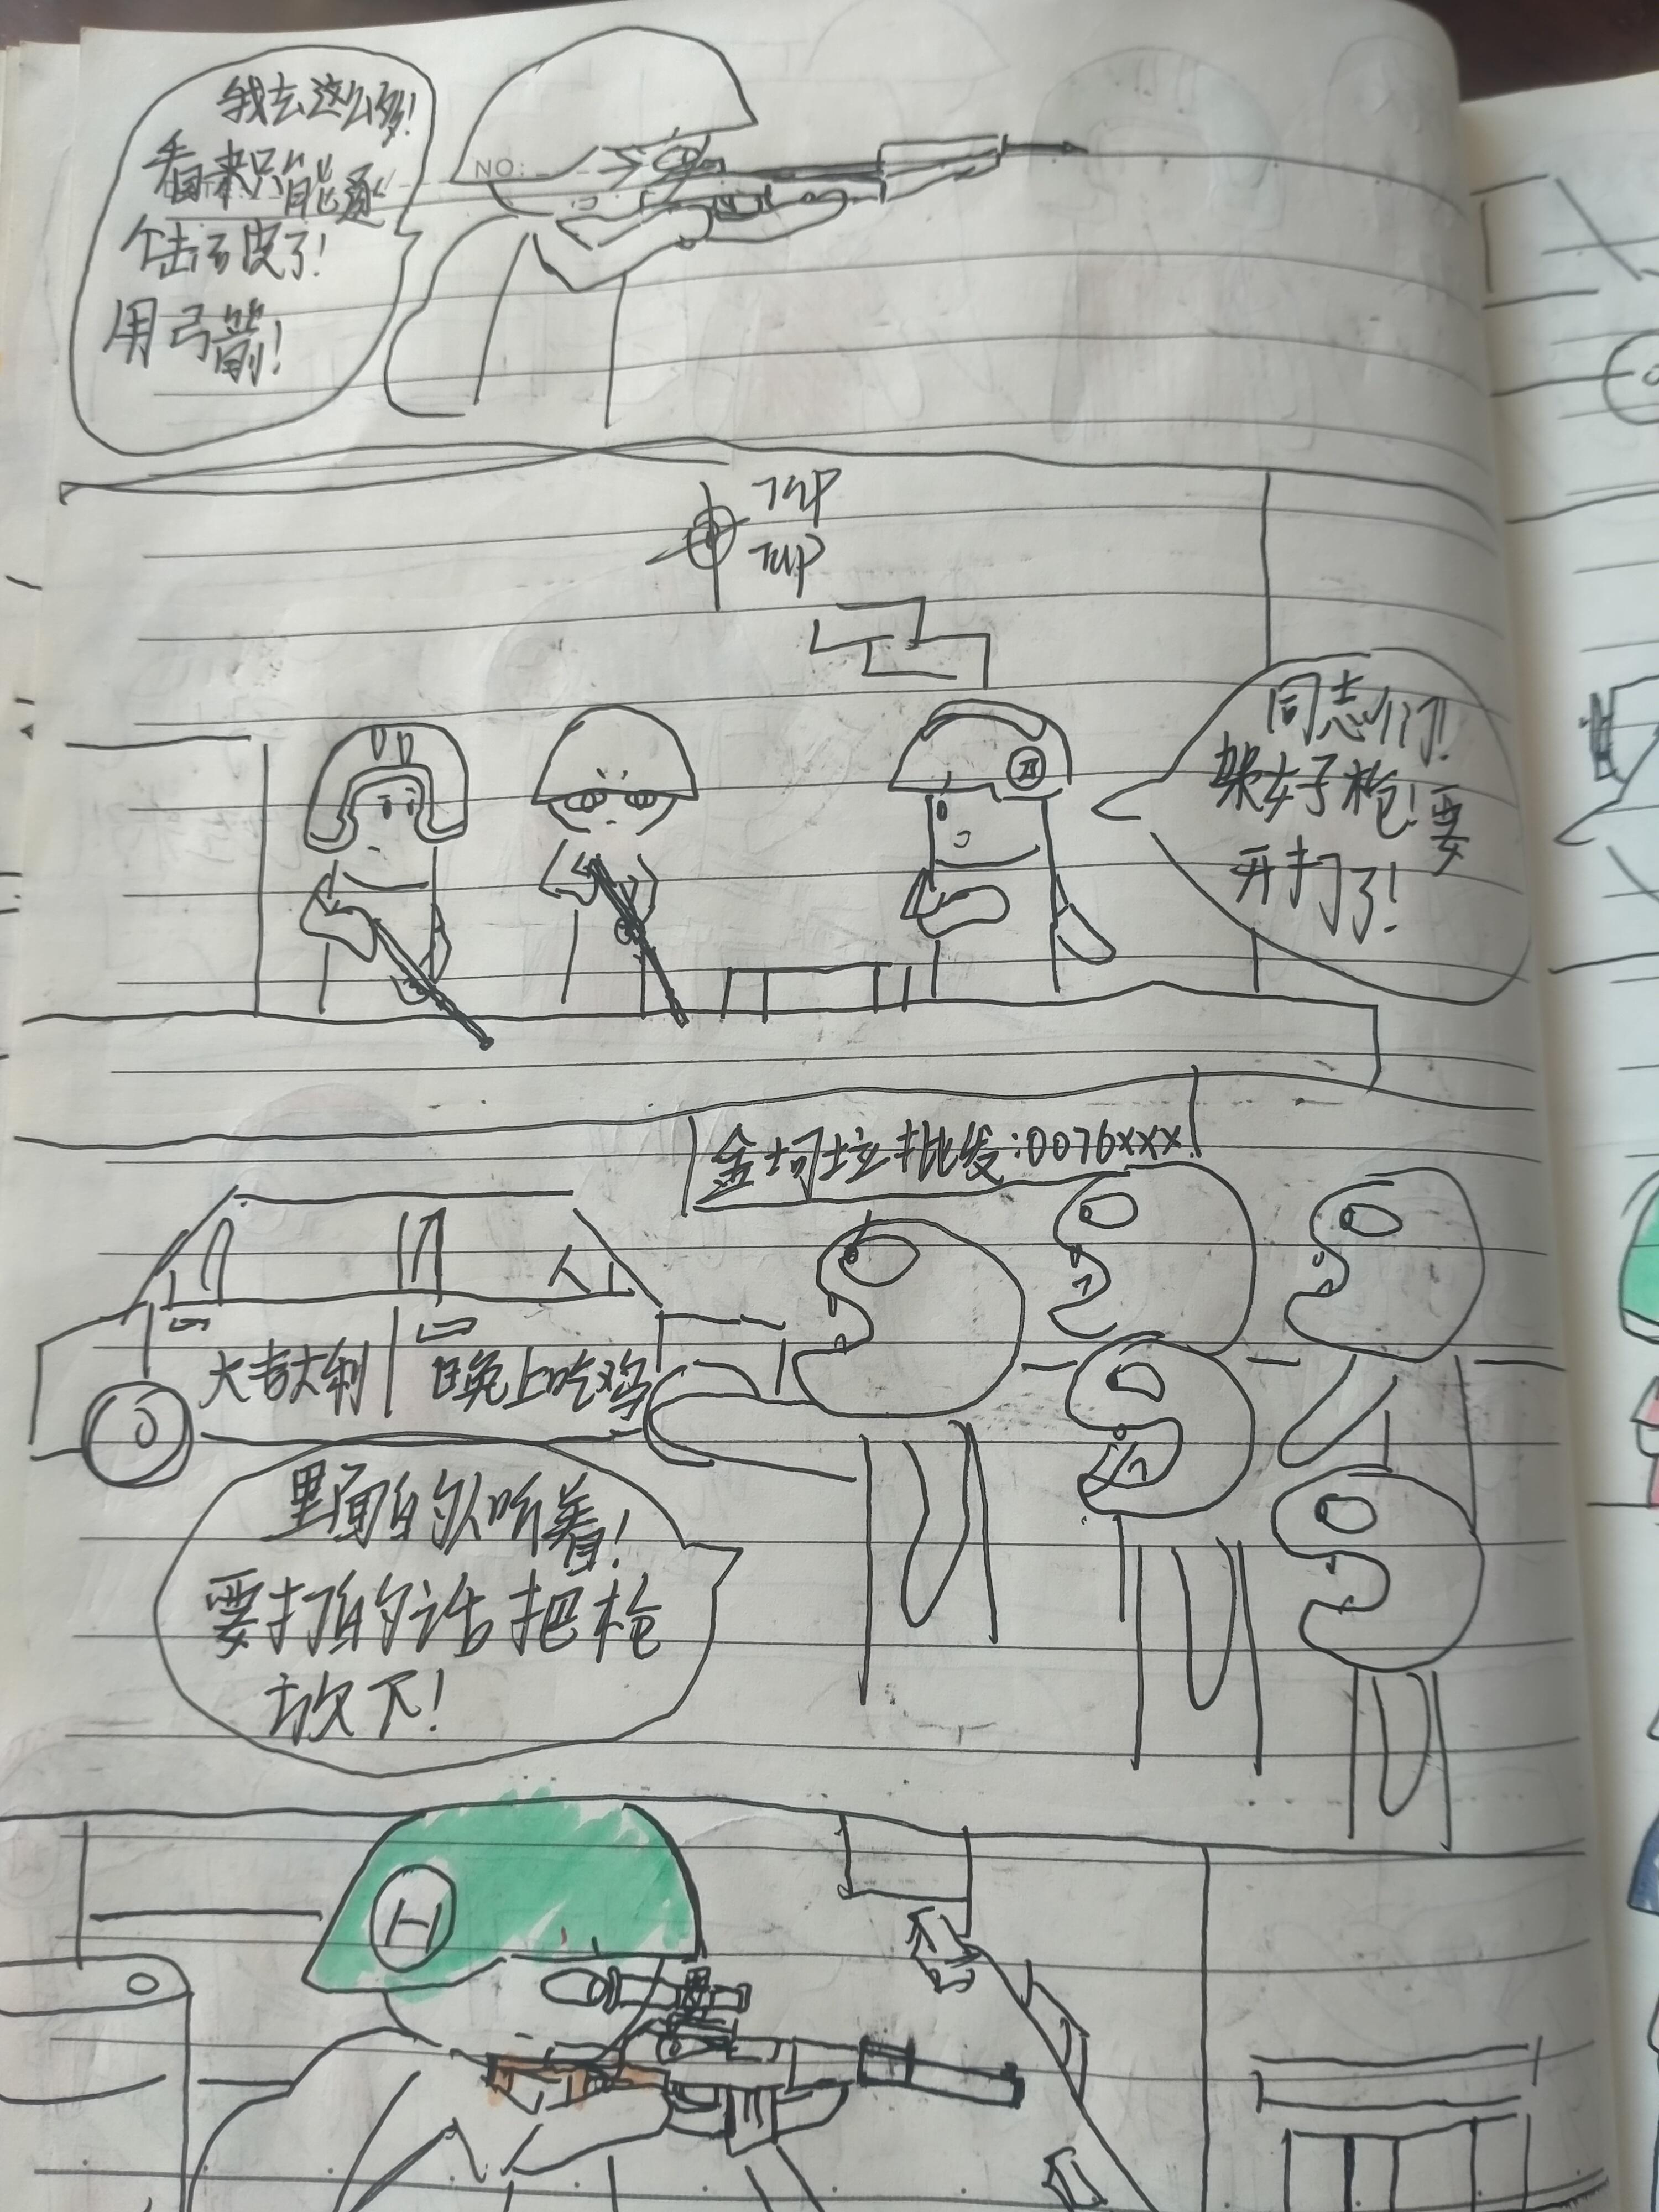 我去这么多!
NO:
看来只能逐
个击破了!
用弓箭!
TUP
TUP
同志们!
架好枪!要
开打了!
金坷垃批发:0076xxx
大吉大利
晚上吃鸡
里面的人听着!
要打的话把枪
放下!
H